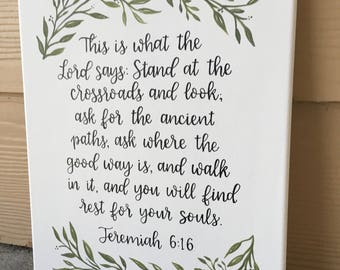 This is what the
Lord says: Stand at the
crossroads and look;
ask for the ancient
paths, ask where the
good way is, and walk
in it, and you will find
rest for your souls.
Jeremiah 6:16